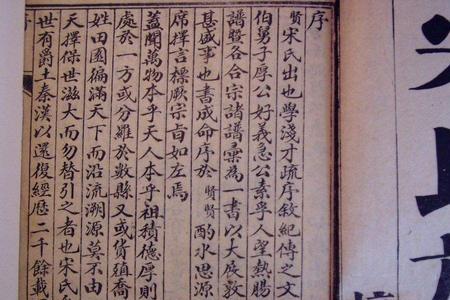 序
賢宋氏出也學淺才疏序敘紀傳之文
伯舅子厚公好義急公素孚人望熱腸
譜股各合宗諸譜彙為一書以大展敦
甚盛事也書成命序於賢賢酌水思源
席擇言標厥宗旨如左焉
蓋聞萬物本乎天人本乎祖積德厚則
處於一方或分雖於數縣又或貨殖喬
姓田園徧滿天下而沿流溯源莫不由
天擇保世滋大而勿替引之者也宋氏
世有爵土秦漢以還復經歷二千餘載